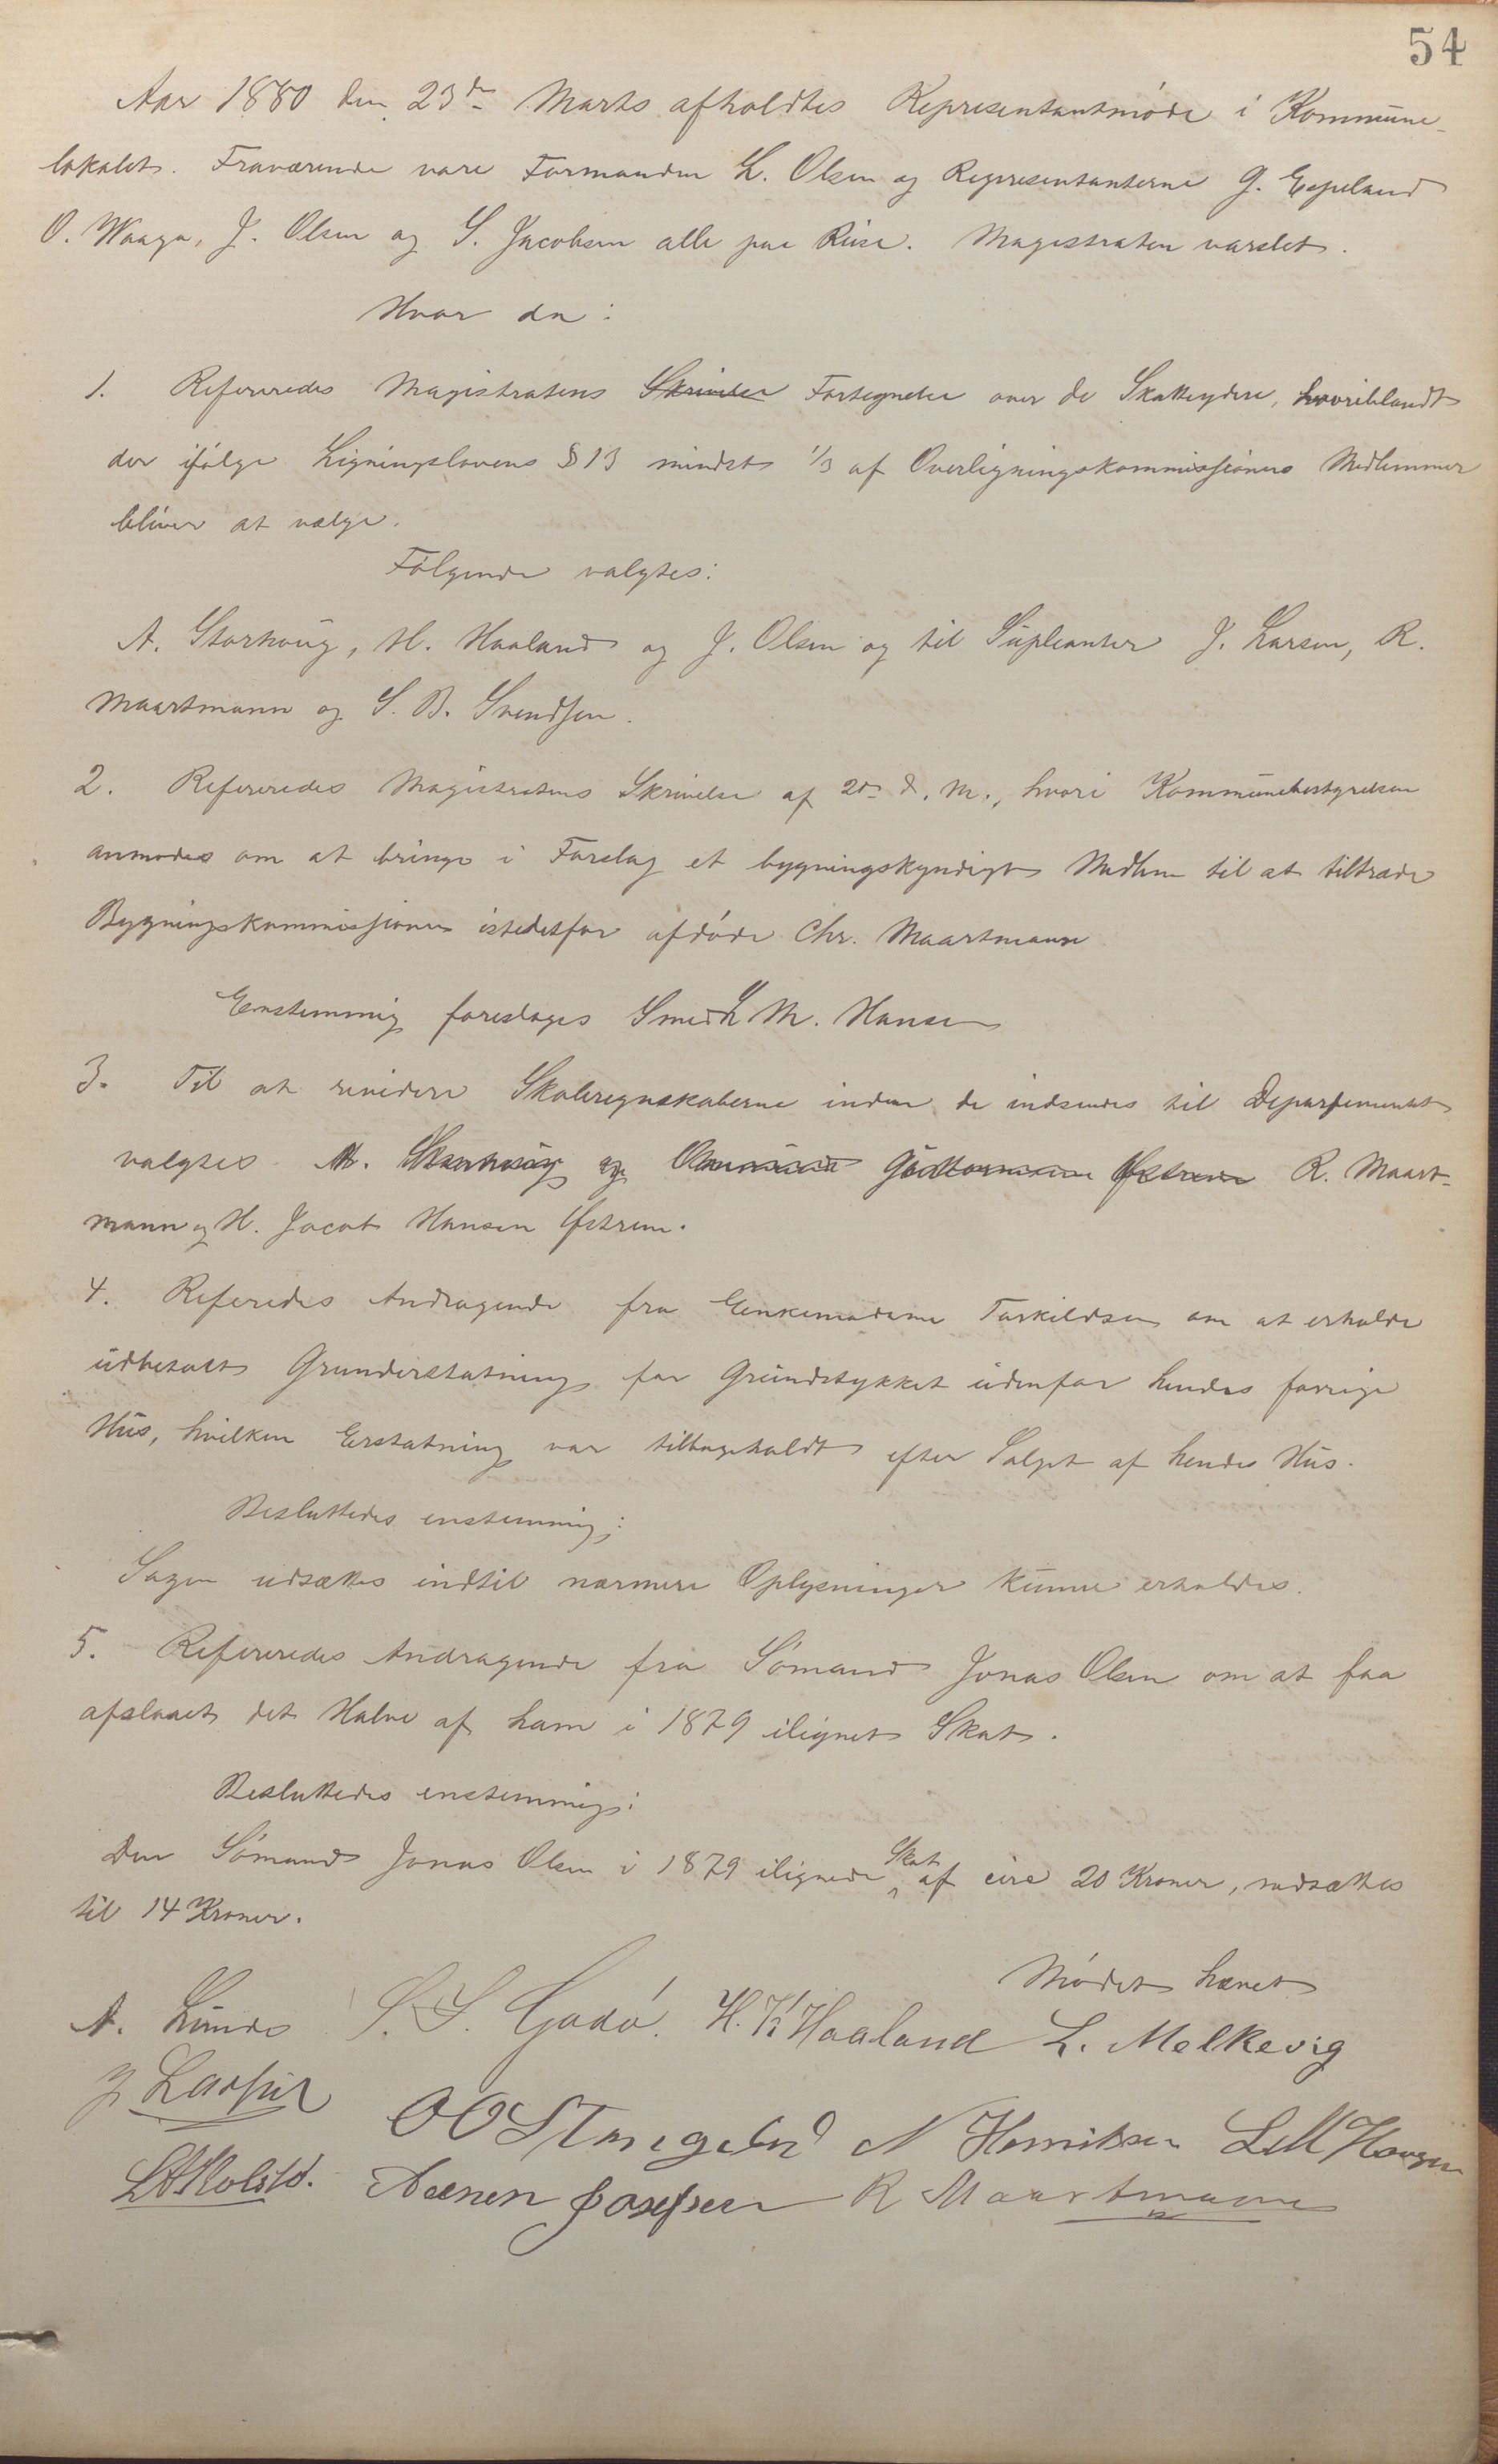 54
Aar 1880 den 23de Marts afholdtes Representantmøde i Kommune-
lokalet. Fraværende vare Formanden L. Olsen og Representanterne G. Espeland
O. Waage, J. Olsen og S. Jacobsen alle paa Reise. Magistraten varslet.
Hvor da:
1. Refereredes Magistratens Skrivelse Fortegnelse over de Skatteydere, hvoriblandt
der ifølge Ligningslovens § 13 mindst 1/3 af Overligningskommissionens Medlemmer
bliver at vælge.
Følgende valgtes:
A. Storhoug, H. Haaland og J. Olsen og til Supleanter J. Larsen, R.
Maartmann og S. B. Svendsen.
2. Refereredes Magistratens Skrivelse af 2den d. M., hvori Kommunebestyrelsen
anmodes om at bringe i Forslag et bygningskyndigt Medlem til at tiltræde
Bygningskommissionen istedetfor afdøde Chr. Maartmann
Eenstemmig foreslages Smed L M. Hansen
3. Til at revidere Skoleregnskaberne inden de indsendes til Departementet
valgtes A. Storhoug og Guttormsen Østrem R. Maart-
mann og H. Jacob Hansen Østrem.
4. Referedes Andragende fra Enkemadame Torkildsen om at erholde
udbetalt Grunderstatning for Grundstykket udenfor hendes forrige
Hus, hvilken Erstatning var tilbageholdt efter Salget af hendes Hus.
Besluttedes enstemmig:
Sagen udsættes indtil nærmere Oplysninger kunne erholdes.
5. Refereredes Andragende fra Sømand Jonas Olsen om at faa
afslaaet det Halve af ham i 1879 ilignet Skat.
Besluttedes enstemmig:
Den Sømand Jonas Olsen i 1879 ilignede Skat af eire 20 Kroner, nedsættes
til 14 Kroner.
Mødet hævet
A. Lunde S. S. Gadø. H. K Haaland L. Melkevig
J Larsen
O O Stangeland N Henriksen L M Hansen
Aanen Josefsen R Maartmann